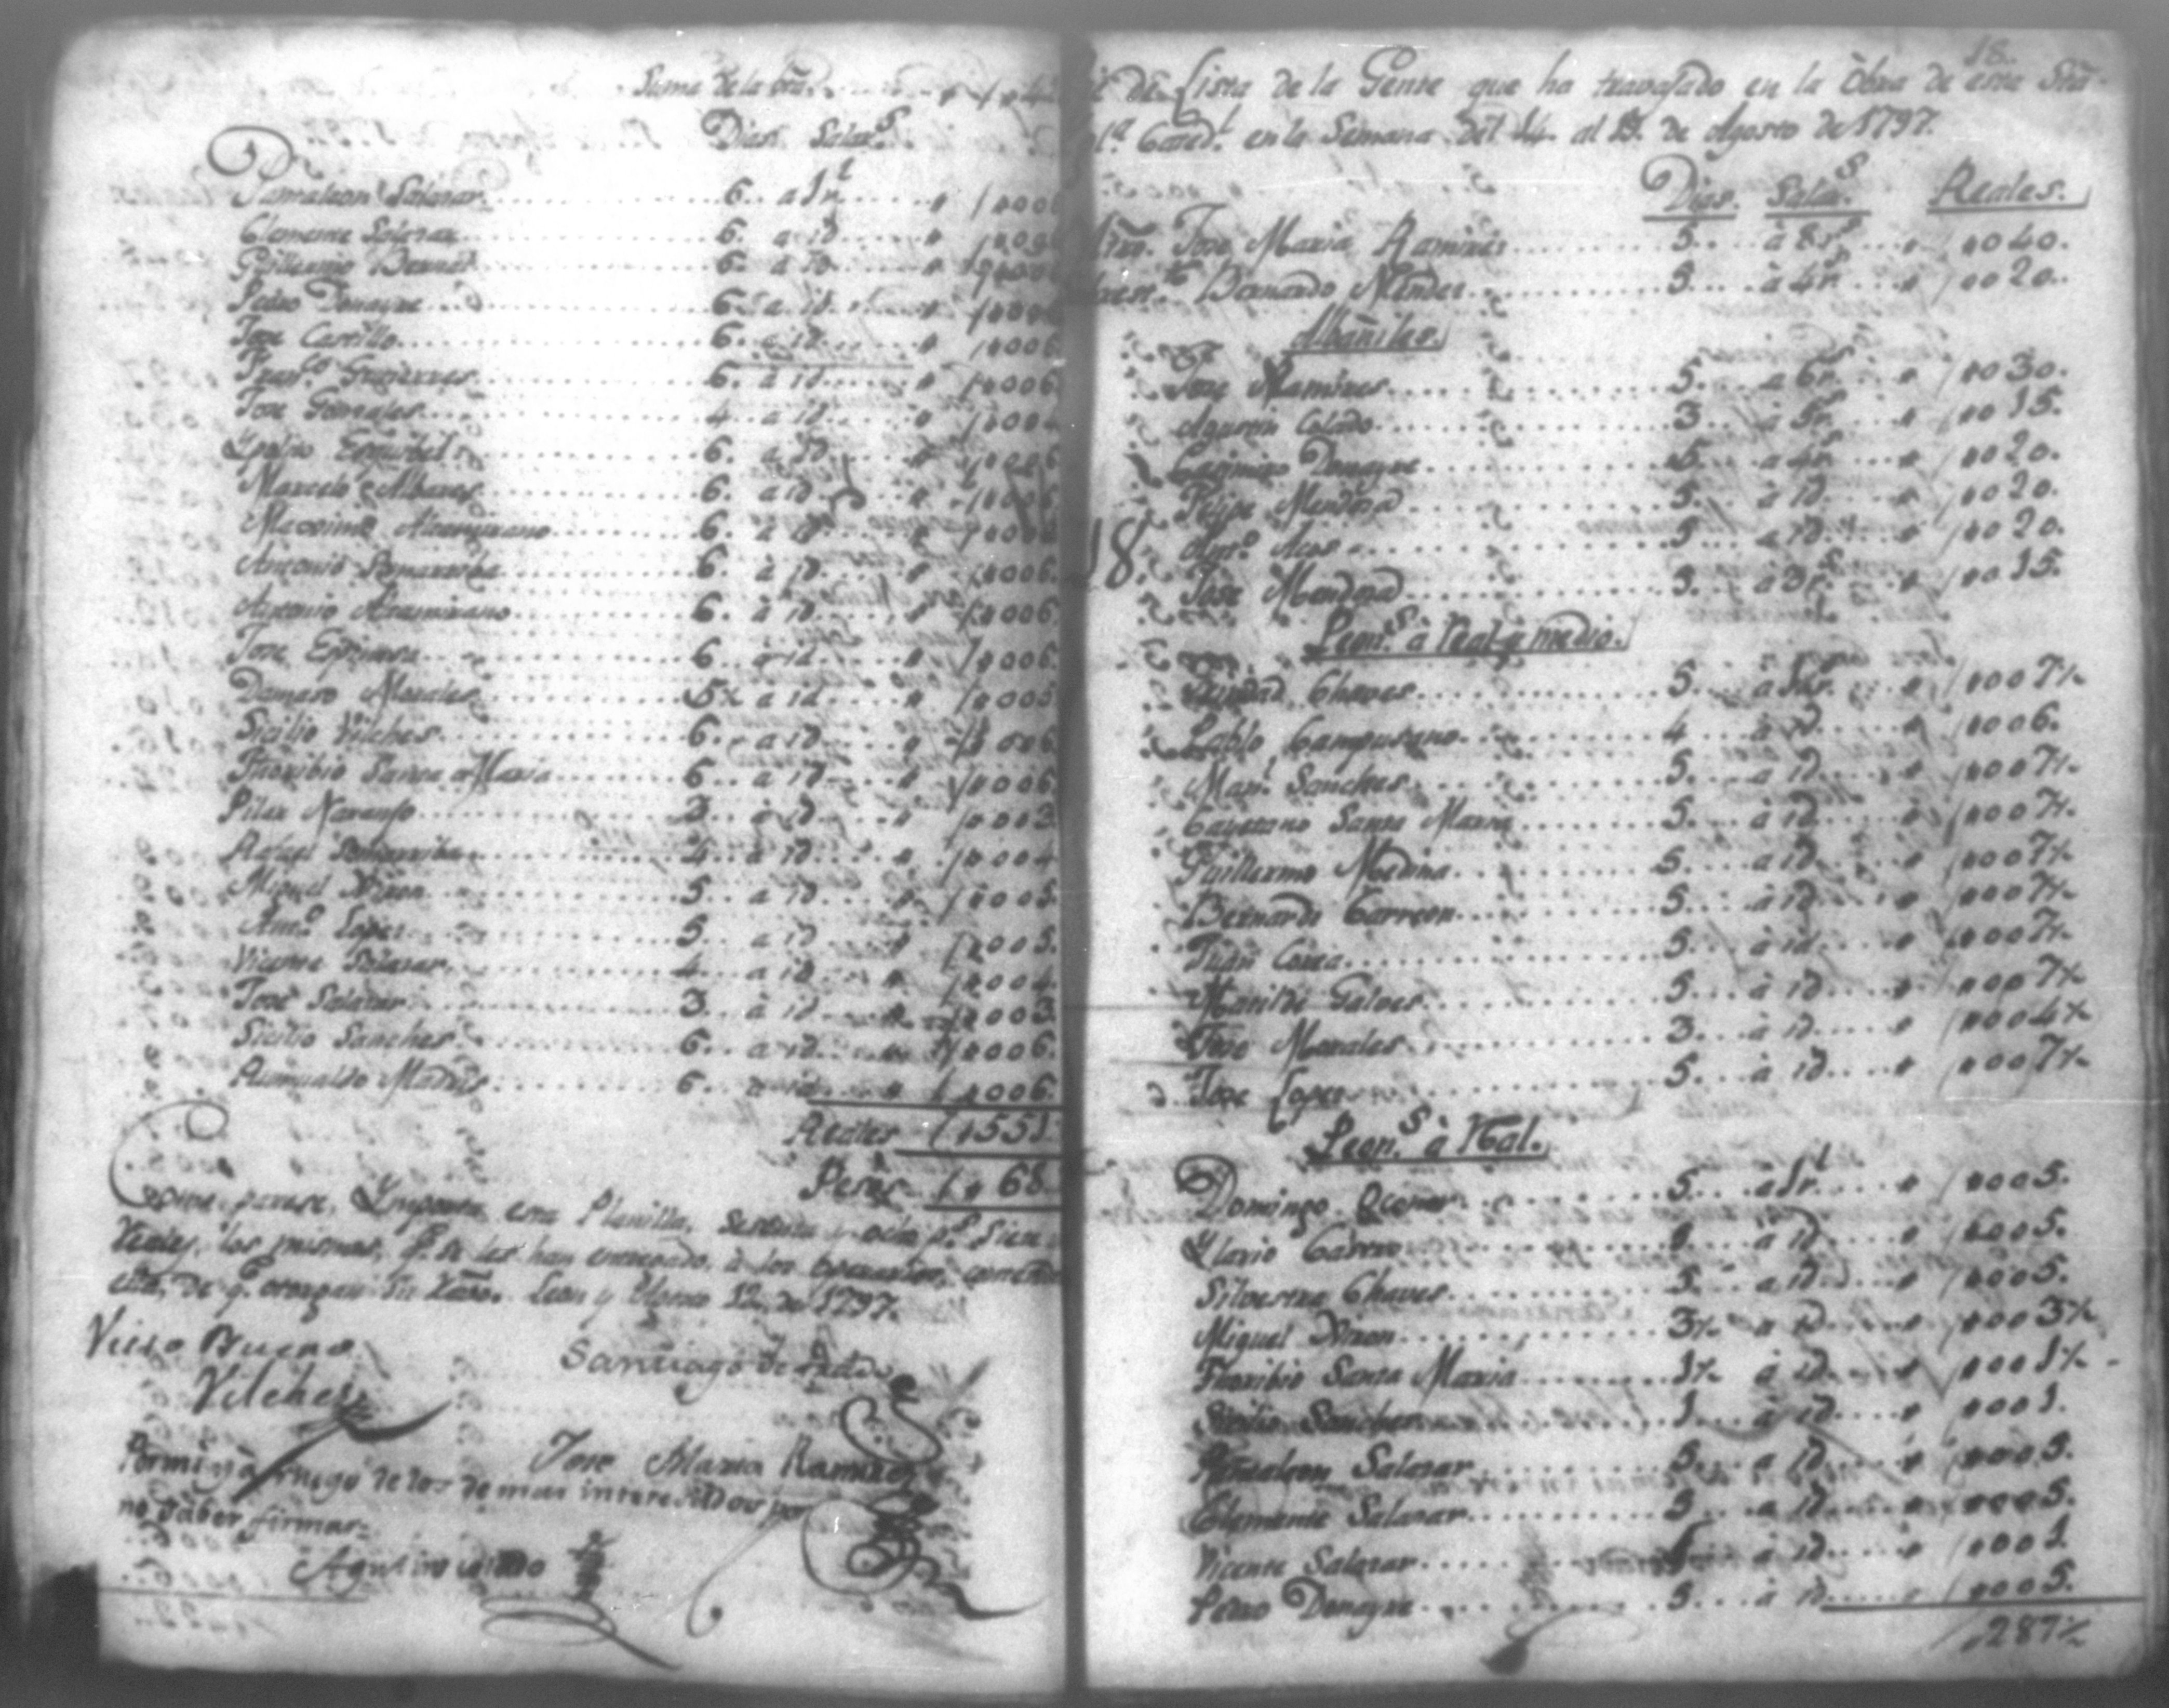 Suma de la bta.
Dias. Salar.s
Pantaleon Salazar 6.. a 1 r.l 006
Clemente Salazar 6. a id 006
Guillermo 6. a id 006
Pedro Donayre 6. a id 006
Jose Carrillo 6. a id 006
Fran.co Gutierres 6. a id 006
Jose Gonzales 4.. a id 004
Ypolito Esquibel 6. a id 006
Marcelo Albares 6. a id 006
Maximo Altamirano 6. a id 006
Antonio 6. à id 006.
Antonio Altamirano 6. à id 006.
Jose Espinosa 6.. à id 006.
Damaso Morales 5½ a id 005
Sicilio Vilches 6. a id 006
Thoribio Santa Maria 6.. a id 006
Pilar Naranjo 3. à id 003.
Rafael 4. à id 004
Miguel Niñon 5.. a id 005.
Ant.o Lopes 5.. a id 005.
Vicente Salazar 4.. a id 004.
José Salazar 3.. à id 003.
Sicilio Sanches 6.. a id 006.
Rumualdo 6. a id 006
Reales 551
Pesos 68
Como parese, Ymporta esta Planilla, sesenta y ocho p.s siete
reales, los mismos, q.e se les han entregado, à los
ella, de q.e otorgan Su Leon y 12. de 1797.
Visto Bueno
Vilches
Santiago de
Jose Maria Ramires
Por mi y à ruego de los demas interesados por
no saber firmar
Agustin colado
18.
Lista de la Gente que ha travajado en la Obra de esta Sta
Cated.l en la Semana del 14. al 19. de Agosto de 1797.
Dias. Salar.s Reales.
Mro. Jose Maria Ramires 5.. à 8 r.s 040.
Bernardo Mendes 5. à 4 r.s 020.
Albañiles.
Jose Ramires 5. a 6 r.s 030.
Agustin Colado 3. a 5 r.s 015.
Casimiro Donayre 5. a 4 r.s 020.
Felipe Mendosa 5. à id 020.
18.
Ant.o 5 a id 020.
Jose Mendosa 5. à 3 r.s 015.
Peon.s à real y medio.
Trinidad Chaves 5. 007½
Pablo Campusano 4 à id 006.
Man.l Sanches 5. à id 007½
Cayetano Santa Maria 5. à id 007½
Guillermo Medina 5. a id 007½
Bernardo Carreon 5. à id 007½
Juan 5. à id 007½
Galves 5. à id 007½
Jose Morales 3. à id 004½
Jose Lopes 5. à id 007½
Peon.s à Real.
Domingo 5. a 1 r.l 005.
Ylario à id 005.
Silvestre Chaves 5. a id 005.
Miguel Niñon 3½ a id 003½
Thoribio Santa Maria 1½ à id 001½
Sicilio Sanches 1. à id 001.
Pantaleon Salazar 5. a id 005.
Clemente Salazar 5. a id 005.
Vicente Salazar à id 001
Pedro Donayre 5. à id 005.
287½